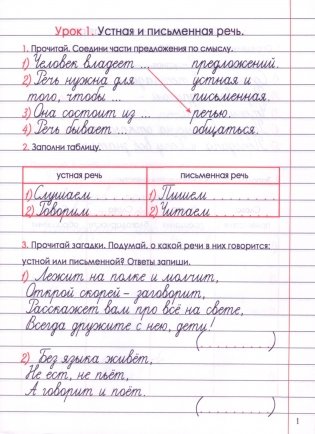 Урок 1. Устная и письменная речь.
1. Прочитай. Соедини части предложения по смыслу.
1) Человек владеет ... предложений.
2) Речь нужна для устная и
того, чтобы ... письменная.
3) Она состоит из ... речью.
4) Речь бывает ... общаться.
2. Заполни таблицу.
устная речь письменная речь
1) Слушаем 1) Пишем
2) Говорим 2) Читаем
3. Прочитай загадки. Подумай, о какой речи в них говорится:
устной или письменной? Ответы запиши.
1) Лежит на полке и молчит,
Открой скорей – заговорит,
Расскажет вам про всё на свете,
Всегда дружите с нею, дети!
(...........)
2) Без языка живёт,
Не ест, не пьёт,
А говорит и поёт.
(...........)
1